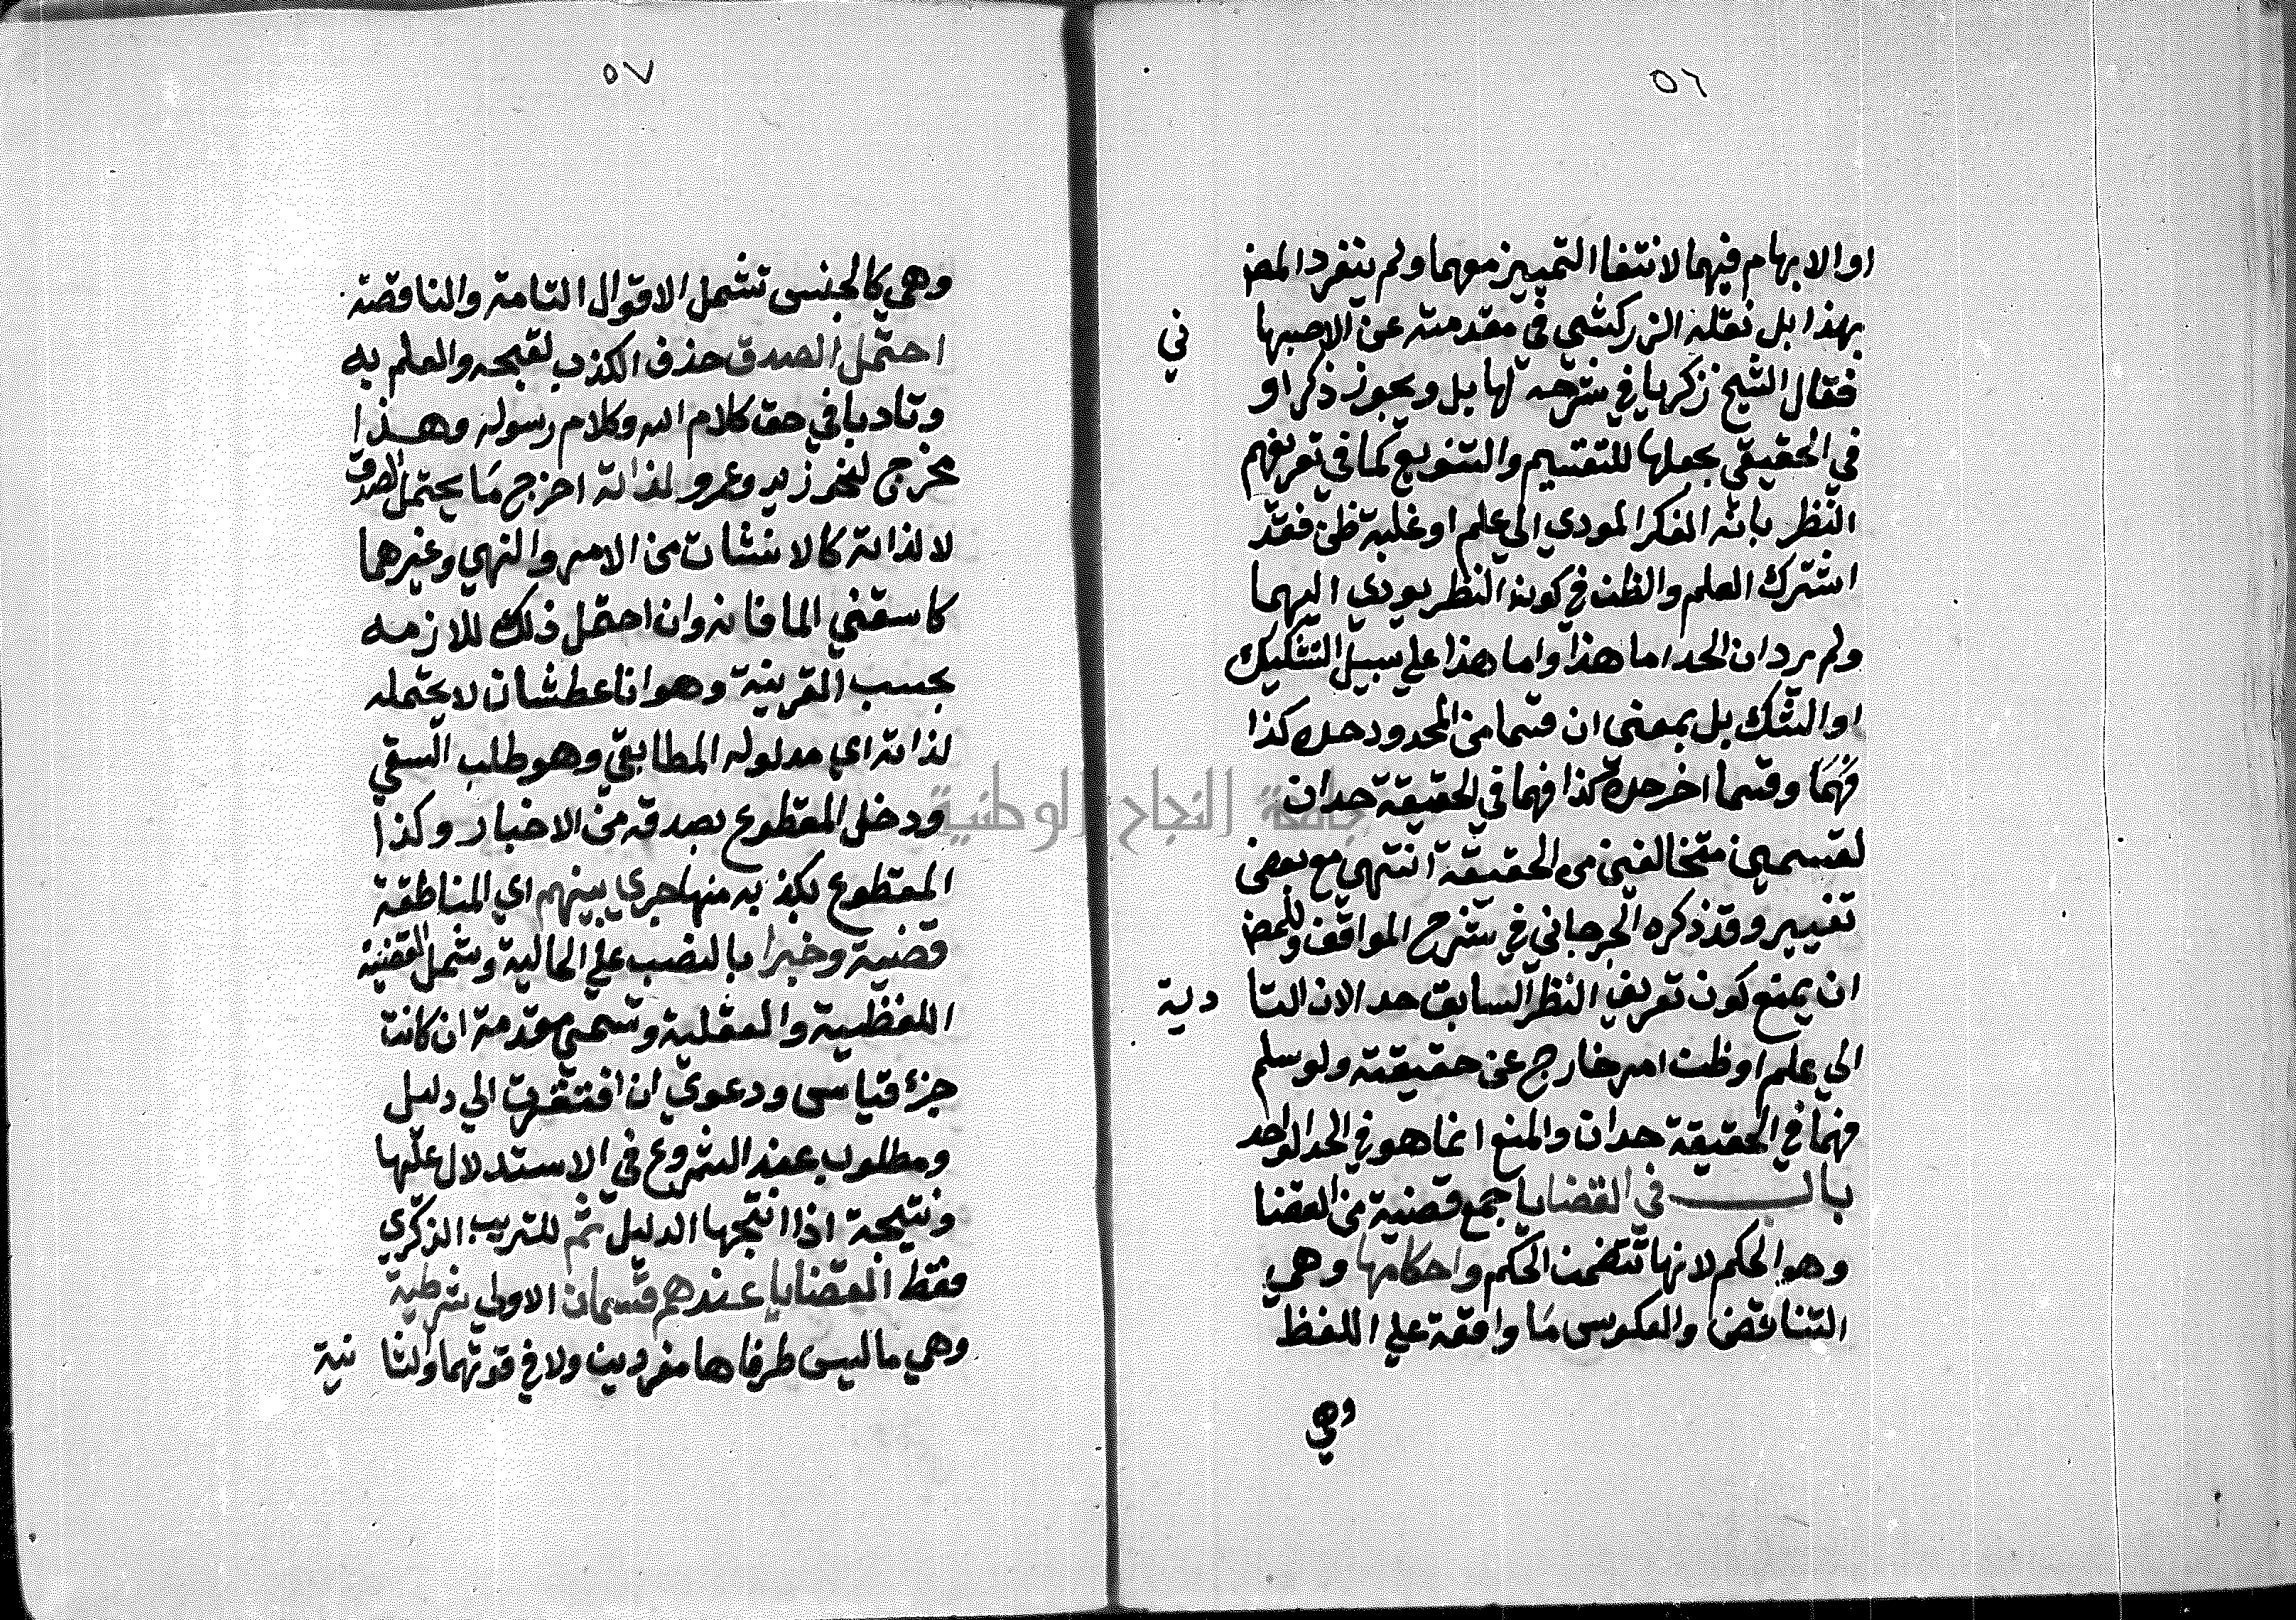 ٥٦
او الابهام فيهما لانتفا التمييز معهما ولم ينفرد المص
بهذا بل نقله الزركشي في مقدمته عن الاصبها ني
فقال الشيخ زكريا في شرحه لها بل ويجوز ذكر او
في الحقيقي بجعلها للتقسيم والتنويع كما في تعريفهم
النظر بانه الفكر المودي الي علم او غلبة ظن فقد
اشترك العلم والظن في كون النظر يودي اليهما
ولم يرد ان الحد اما هذا واما هذا علي سبيل التشكيك
او الشك بل بمعني ان قسما من المحدود حده كذا
فهما وقسما اخر حده كذا فهما في الحقيقة حدان
لقسمين متخالفين من الحقيقة انتهي مع بعض
تغيير وقد ذكره الجرجاني في شرح المواقف وللمص
ان يمنع كون تعريف النظر السابق حد الان التا دية
الي علم او ظن امر خارج عن حقيقته ولو سلم
فهما في الحقيقة حدان والمنع انما هو في الحد الواحد
باب في القضايا جمع قضية من القضا
وهو الحكم لانها تتضمن الحكم واحكامها وهي
التناقض والعكوس ما وافقة علي اللفظ
وهي
٥٧
وهي كالجنس تشمل الاقوال التامة والناقصة
احتمل الصدق حذف الكذب لقبحه والعلم به
وتادبا في حق كلام الله وكلام رسوله وهذا
مخرج لنحو زيد وعمرو لذاته اخرج ما يحتمل الصدق
لا لذاته كالانشات من الامر والنهي وغيرهما
كاسقني الما فانه وان احتمل ذلك للازمه
بحسب القرينة وهو انا عطشان لا يحتمله
لذاته اي مدلوله المطابقي وهو طلب السقي
ودخل المقطوع بصدقه من الاخبار وكذا
المقطوع بكذبه منها جري بينهم اي المناطقة
قضية وخبرا بالنصب علي الحالية وشمل القضية
اللفظية والعقلية وتسمي مقدمة ان كانت
جزء قياس ودعوي ان افتقرت الي دليل
ومطلوب عند الشروع في الاستدلال عليها
ونتيجة اذا انتجها الدليل ثم للتريب الذكري
فقط القضايا عندهم قسمان الاولي شرطية
وهي ما ليس طرفاها مفردين ولا في قوتهما والثا نية
جامعة النجاح الوطنية